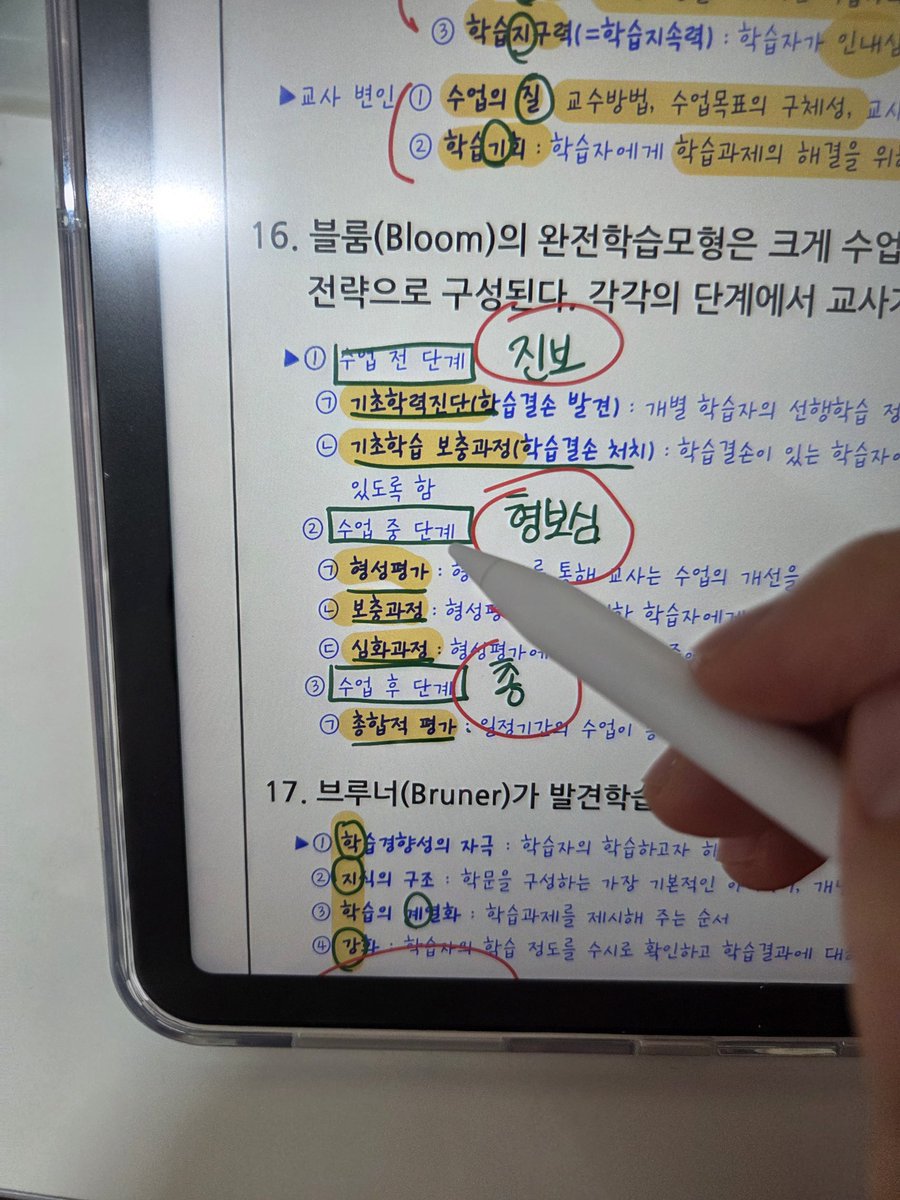 ③ 학습지구력(=학습지속력) : 학습자가 인내심
▶교사 변인 ① 수업의 질 교수방법, 수업목표의 구체성, 교사
② 학습기회 : 학습자에게 학습과제의 해결을 위해
16. 블룸(Bloom)의 완전학습모형은 크게 수업
전략으로 구성된다. 각각의 단계에서 교사가
▶① 수업 전 단계 진보
㉠ 기초학력진단(학습결손 발견) : 개별 학습자의 선행학습 정
㉡ 기초학습 보충과정(학습결손 처치) : 학습결손이 있는 학습자에
있도록 함
② 수업 중 단계 형보심
㉠ 형성평가 : 형 를 통해 교사는 수업의 개선을
㉡ 보충과정 : 형성평 학습자에게
㉢ 심화과정 : 형성평가에
③ 수업 후 단계 총
㉠ 총합적 평가 : 일정기간의 수업이
17. 브루너(Bruner)가 발견학습
▶① 학습경향성의 자극 : 학습자의 학습하고자 하
② 지식의 구조 : 학문을 구성하는 가장 기본적인
③ 학습의 계열화 : 학습과제를 제시해 주는 순서
④ 강화 : 학습자의 학습 정도를 수시로 확인하고 학습결과에 대해